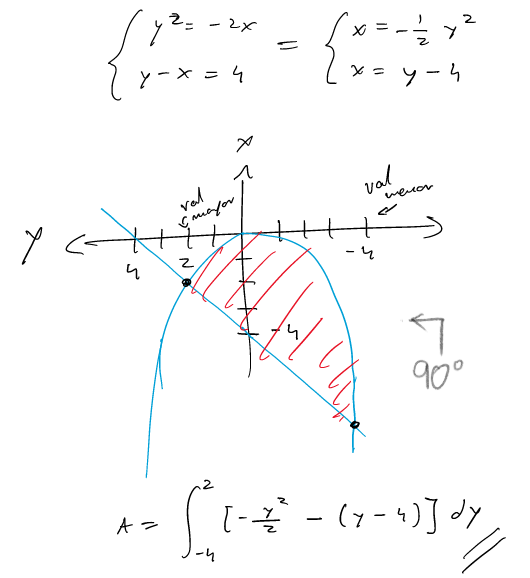 { y² = -2x = { x = -1/2 y²
{ y - x = 4 { x = y - 4
x
val mayor
val menor
y
4 2 -4
-4
90°
A = ∫_{-4}^{2} [-y²/2 - (y - 4)] dy